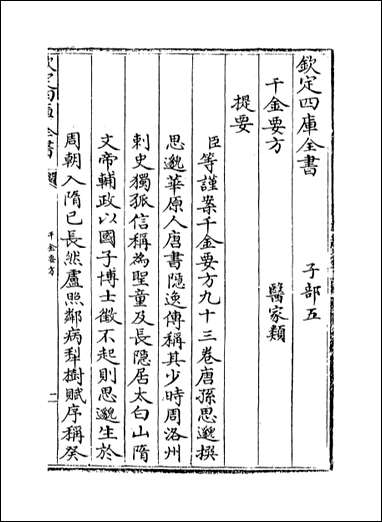 欽定四庫全書 子部五
千金要方 醫家類
提要
臣等謹案千金要方九十三卷唐孫思邈撰
思邈華原人唐書隱逸傳稱其少時周洛州
刺史獨孤信稱為聖童及長隱居太白山隋
文帝輔政以國子博士徵不起則思邈生於
周朝入隋已長然盧照鄰病梨樹賦序稱癸
欽定四庫全書
千金要方